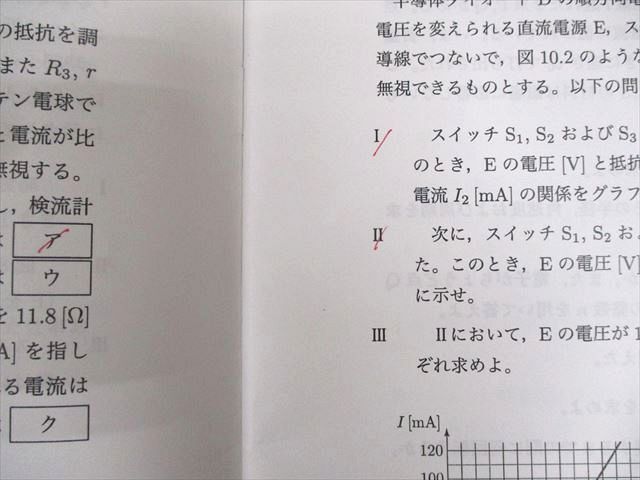 の抵抗を調
また R₃, r
テン電球で
と電流が比
無視する。
し，検流計
ア
ウ
を 11.8 [Ω]
A] を指し
れる電流は
ク
半導体ダイオード D の順方向電
電圧を変えられる直流電源 E，ス
導線でつないで，図 10.2 のような
無視できるものとする。以下の問
I スイッチ S₁, S₂ および S₃
のとき，E の電圧 [V] と抵抗
電流 I₂ [mA] の関係をグラフ
II 次に，スイッチ S₁, S₂ およ
た。このとき，E の電圧 [V]
に示せ。
III IIにおいて，E の電圧が 1
ぞれ求めよ。
I [mA]
120
100